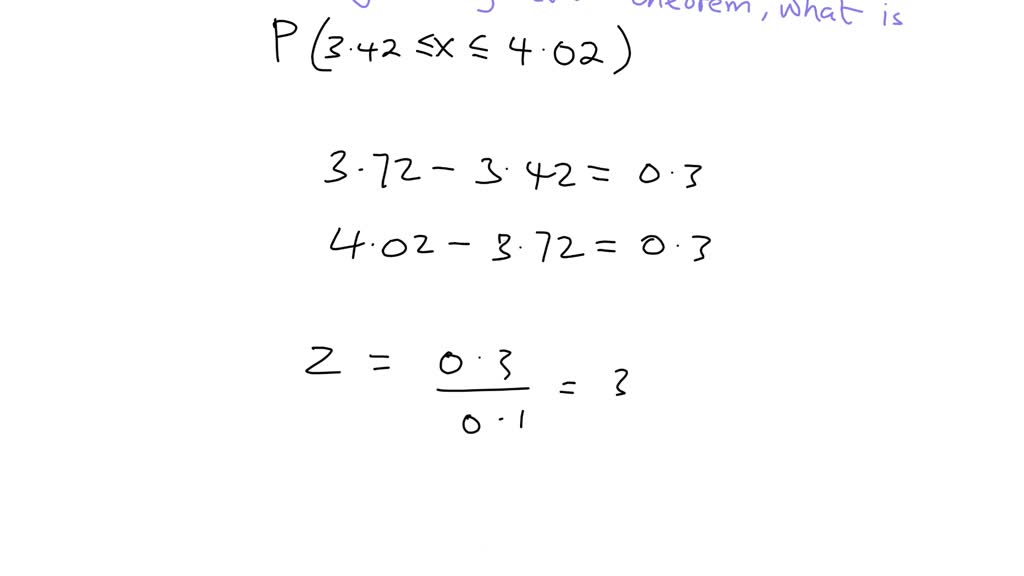 theorem, what is
P(3.42 ≤x ≤ 4.02)
3.72 - 3.42 = 0.3
4.02 - 3.72 = 0.3
Z = 0.3 / 0.1 = 3